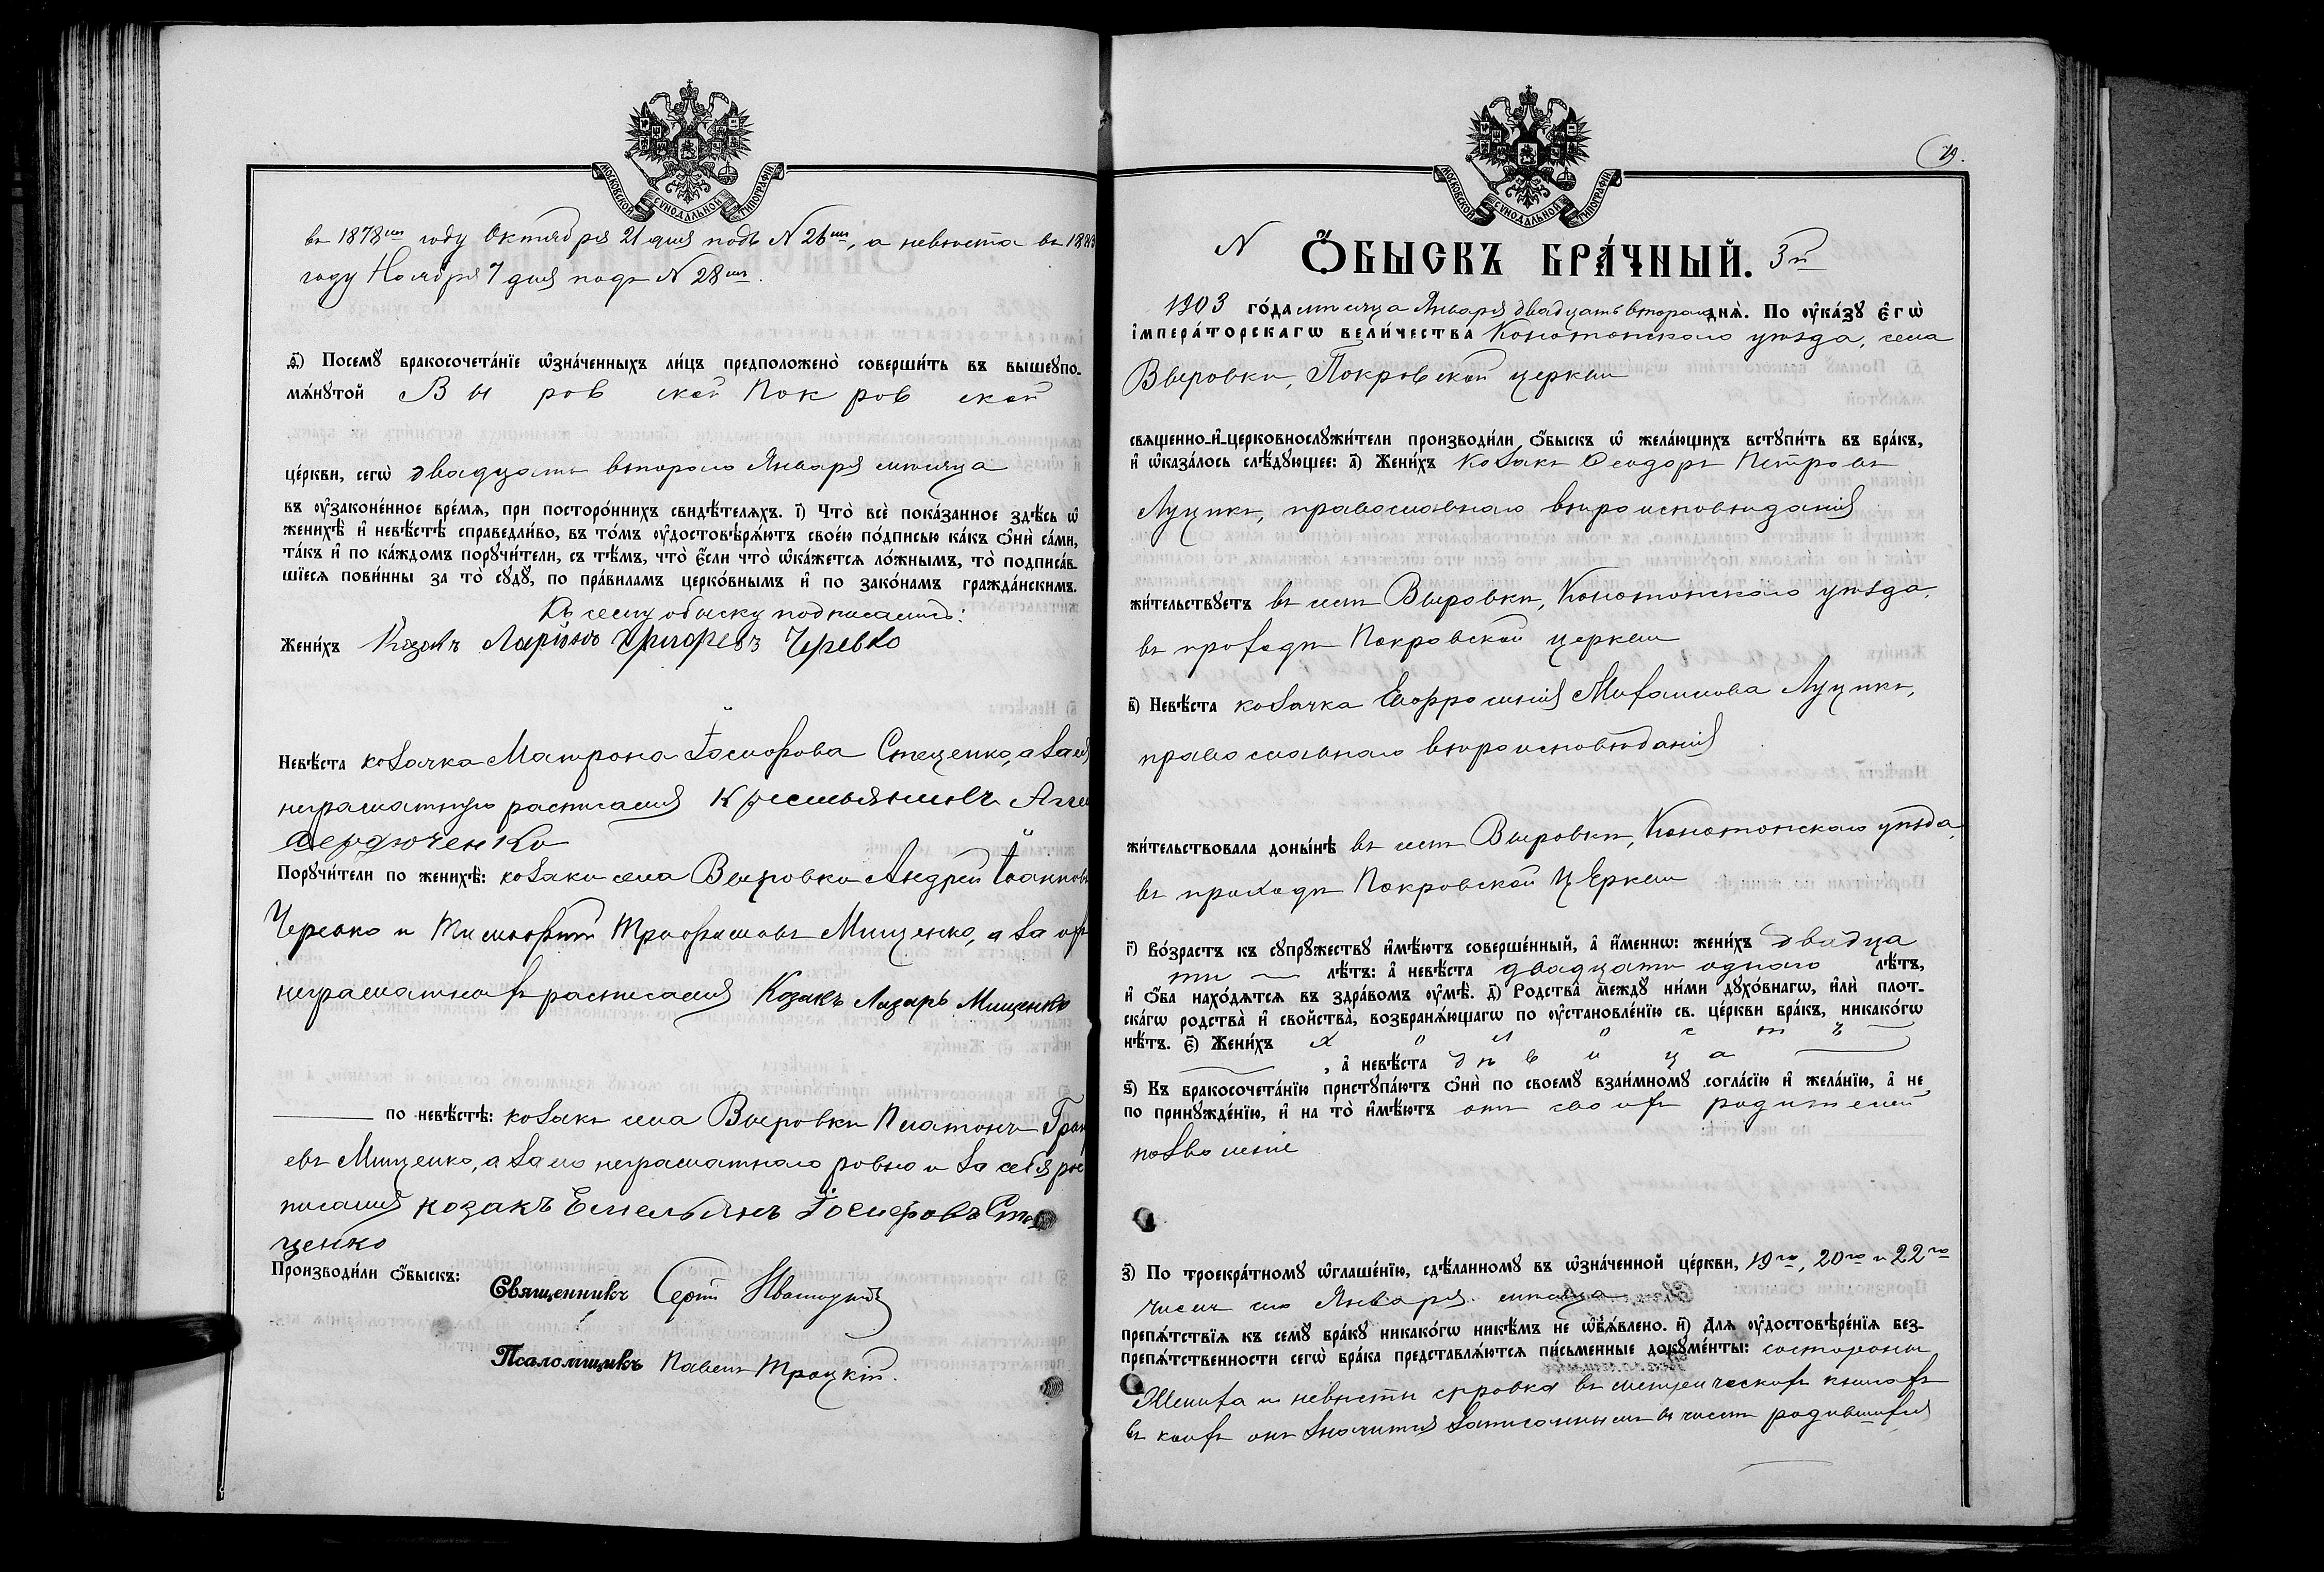 МОСКОВСКОЙ СѴНОДАЛЬНОЙ ТИПОГРАФІИ
въ 1878мъ году Октября 21 дня подъ N 26мъ, а невѣста въ 1883
году Ноября 7 дня подъ N 28мъ.
ѳ҃) Посемꙋ бракосочета́нїе ѡ҆зна́ченныхъ ли́цъ предположено̀ соверши́ть въ вышеꙋпо-
мѧ́нꙋтой Выровской Покровской
це́ркви, сегѡ̀ двадцать втораго Января мѣсяца
въ ᲂу҆законе́нное вре́мѧ, при посторо́ннихъ свидѣ́телѧхъ. і҃) Что̀ всѐ пока́занное здѣ́сь ѡ҆
женихѣ̀ и҆ невѣ́стѣ справедли́во, въ то́мъ ᲂу҆достовѣрѧ́ютъ свое́ю по́дписью ка́къ ѻ҆нѝ са́ми,
та́къ и҆ по ка́ждомъ порꙋчи́тели, съ тѣ́мъ, что̀ є҆́сли что̀ ѡ҆ка́жетсѧ ло́жнымъ, то̀ подписа́в-
шїесѧ пови́нны за то̀ сꙋдꙋ̀, по пра́виламъ церко́внымъ и҆ по зако́намъ гражда́нскимъ.
Къ сему обыску подписались:
Жени́хъ Козакъ Ларіонъ Григорьевъ Черевко
Невѣ́ста козачка Матрона Іосифова Стеценко, а за нея
неграмотную расписался Крестьянинъ
Сердюченко
Порꙋчи́тели по женихѣ̀: козаки села Выровки Андрей Іоанновъ
Черевко и Тимофей Трофимовъ Мищенко, а за ихъ
неграмотныхъ расписался Козакъ Лазарь Мищенко
по невѣ́стѣ: козакъ села Выровки Платонъ
евъ Мищенко, а за него неграмотнаго равно и за себя рос
писался козакъ Емельянъ Іосифовъ Сте
ценко
Производи́ли ѻ҆́быскъ:
Священникъ Сергій
Псаломщикъ Павелъ Троцкій.
79.
МОСКОВСКОЙ СѴНОДАЛЬНОЙ ТИПОГРАФІИ
N Ѻ҆́БЫСКЪ БРА́ЧНЫЙ. 3й
1903 го́да мѣсяца Января двадцать втораго днѧ̀. По ᲂу҆ка́зꙋ є҆гѡ̀
і҆мпера́торскагѡ вели́чества Конотопскаго уѣзда, села
Выровки, Покровской церкви
свѧщенно-и҆-церковнослꙋжи́тели производи́ли ѻ҆́быскъ ѡ҆ жела́ющихъ встꙋпи́ть въ бра́къ,
и҆ ѡ҆каза́лось слѣ́дꙋющее: а҃) Жени́хъ козакъ Ѳеодоръ Петровъ
Луцыкъ, православнаго вѣроисповѣданія
жи́тельствꙋетъ въ селѣ Выровки, Конотопскаго уѣзда,
въ приходѣ Покровской церкви
в҃) Невѣ́ста козачка Евфросинія Михаилова Луцыкъ,
православнаго вѣроисповѣданія
жи́тельствовала доны́нѣ въ селѣ Выровки, Конотопскаго уѣзда,
въ приходѣ Покровской Церкви
г҃) Во́зрастъ къ сꙋпрꙋ́жествꙋ и҆мѣ́ютъ соверше́нный, а҆ и҆́меннѡ: жени́хъ двадца
ти лѣ́тъ: а҆ невѣ́ста двадцати одного лѣ́тъ,
и҆ ѻ҆́ба нахо́дѧтсѧ въ здра́вомъ ᲂу҆мѣ̀. д҃) Родства̀ междꙋ̀ ни́ми дꙋхо́внагѡ, и҆лѝ плот-
ска́гѡ родства̀ и҆ свойства̀, возбранѧ́ющагѡ по ᲂу҆становле́нїю св. це́ркви бра́къ, никако́гѡ
нѣ́тъ. є҃) Жени́хъ холостъ
, а҆ невѣ́ста дѣвица
ѕ҃) Къ бракосочета́нїю пристꙋпа́ютъ ѻ҆нѝ по своемꙋ̀ взаи́мномꙋ согла́сїю и҆ жела́нїю, а҆ не
по принꙋжде́нїю, и҆ на то̀ и҆мѣ́ютъ отъ своихъ родителей
позволеніе
з҃) По троекра́тномꙋ ѡ҆глаше́нїю, сдѣ́ланномꙋ въ ѡ҆зна́ченной це́ркви, 19го, 20го и 22го
чиселъ сего Января мѣсяца
препѧ́тствїѧ къ семꙋ̀ бра́кꙋ никако́гѡ никѣ́мъ не ѡ҆б̾ѧ́влено. и҃) Длѧ ᲂу҆достовѣре́нїѧ без-
препѧ́тственности сегѡ̀ бра́ка представлѧ́ютсѧ пи́сьменные докꙋме́нты: состороны
Жениха и невѣсты справка въ метрическихъ книгахъ
въ коихъ онъ значится записаннымъ въ числѣ родившихся